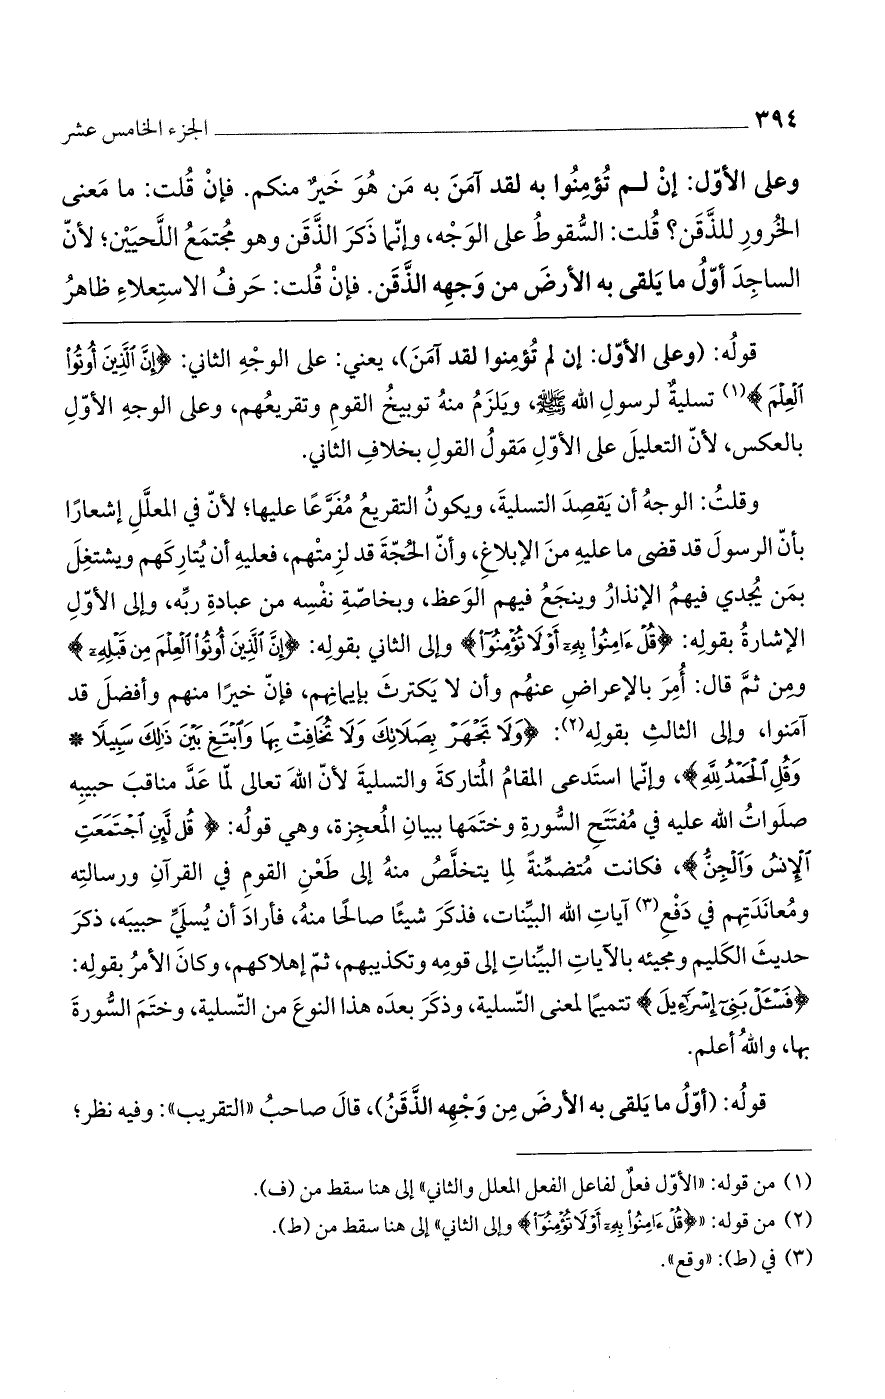 ٣٩٤ الجزء الخامس عشر
وعلى الأوّل: إنْ لـم تُؤمِنُوا به لقد آمَنَ به مَن هُوَ خَيرٌ منكم. فإنْ قُلت: ما مَعنى
الخُرورِ للذَّقَن؟ قُلت: السُّقوطُ على الوَجْه، وإنّما ذَكَرَ الذَّقَن وهو مُجتمَعُ اللَّحيَيْن؛ لأنّ
الساجِدَ أوّلُ ما يَلقى به الأرضَ من وَجهِه الذَّقَن. فإنْ قُلت: حَرفُ الاستِعلاءِ ظاهرُ
قولُه: (وعلى الأوّل: إن لم تُؤمِنوا لقد آمَنَ)، يعني: على الوجْهِ الثاني: ﴿إِنَّ ٱلَّذِينَ أُوتُوا۟
ٱلْعِلْمَ﴾(١) تسليةٌ لرسولِ الله ﷺ، ويَلزَمُ منهُ توبيخُ القومِ وتقريعُهم، وعلى الوجهِ الأوّلِ
بالعكس، لأنّ التعليلَ على الأوّلِ مَقولُ القولِ بخلافِ الثاني.
وقلتُ: الوجهُ أن يَقصِدَ التسليةَ، ويكونُ التقريعُ مُفَرَّعًا عليها؛ لأنّ في المعلَّلِ إشعارًا
بأنّ الرسولَ قد قضى ما عليهِ منَ الإبلاغِ، وأنّ الحُجّةَ قد لزِمتْهم، فعليهِ أن يُتارِكَهم ويشتغِلَ
بمَن يُجدي فيهمُ الإنذارُ وينجَعُ فيهم الوَعظ، وبخاصّةِ نفْسِه من عبادةِ ربِّه، وإلى الأوّلِ
الإشارةُ بقولِه: ﴿قُلْ ءَامِنُوا۟ بِهِۦٓ أَوْ لَا تُؤْمِنُوٓا۟﴾ وإلى الثاني بقولِه: ﴿إِنَّ ٱلَّذِينَ أُوتُوا۟ ٱلْعِلْمَ مِن قَبْلِهِۦٓ﴾
ومِن ثمَّ قال: أُمِرَ بالإعراضِ عنهُم وأن لا يَكترثَ بإيمانِهم، فإنّ خيرًا منهم وأفضلَ قد
آمَنوا، وإلى الثالثِ بقولِه(٢): ﴿وَلَا تَجْهَرْ بِصَلَاتِكَ وَلَا تُخَافِتْ بِهَا وَٱبْتَغِ بَيْنَ ذَٰلِكَ سَبِيلًا *
وَقُلِ ٱلْحَمْدُ لِلَّهِ﴾، وإنّما استَدعى المقامُ المُتاركةَ والتسليةَ لأنّ اللهَ تعالى لمّا عَدَّ مناقبَ حبيبِه
صلَواتُ الله عليه في مُفتَتَحِ السُّورةِ وختَمَها ببيانِ المُعجِزة، وهي قولُه: ﴿قُل لَّئِنِ ٱجْتَمَعَتِ
ٱلْإِنسُ وَٱلْجِنُّ﴾، فكانت مُتضمِّنةً لِما يتخلَّصُ منهُ إلى طَعْنِ القومِ في القرآنِ ورسالتِه
ومُعانَدَتِهم في دَفْعِ(٣) آياتِ الله البيِّنات، فذكَرَ شيئًا صالحًا منهُ، فأرادَ أن يُسلِّيَ حبيبَه، ذكرَ
حديثَ الكَليم ومجيئه بالآياتِ البيِّناتِ إلى قومِه وتكذيبهم، ثمّ إهلاكهم، وكانَ الأمرُ بقولِه:
﴿فَسْـَٔلْ بَنِىٓ إِسْرَٰٓءِيلَ﴾ تتميمًا لمعنى التّسلية، وذكَرَ بعدَه هذا النوعَ من التّسلية، وختَمَ السُّورةَ
بها، واللهُ أعلم.
قولُه: (أوّلُ ما يَلقى به الأرضَ مِن وَجْهِه الذَّقَنُ)، قالَ صاحبُ «التقريب»: وفيه نظر؛
(١) من قوله: «الأوّل فعلٌ لفاعل الفعل المعلل والثاني» إلى هنا سقط من (ف).
(٢) من قوله: «﴿قُلْ ءَامِنُوا۟ بِهِۦٓ أَوْ لَا تُؤْمِنُوٓا۟﴾ وإلى الثاني» إلى هنا سقط من (ط).
(٣) في (ط): «وقع».